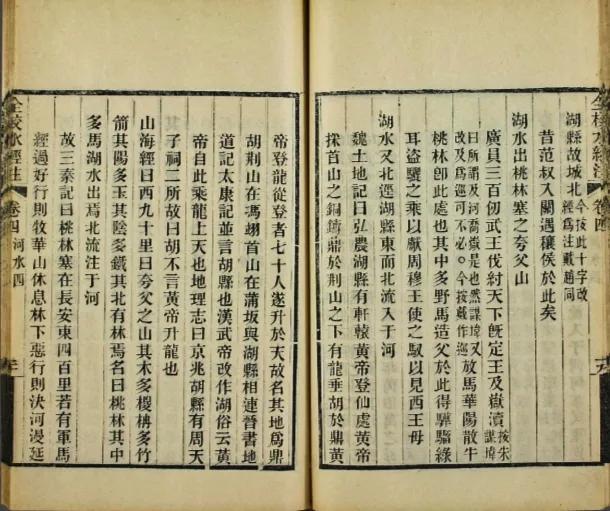 全校水經注 卷四
湖縣故城北今按此十字改
經爲注戴趙同
昔范叔入關遇穰侯於此矣
湖水出桃林塞之夸父山
廣員三百仞武王伐紂天下旣定王及嶽瀆按朱
謀㙔
曰所謂及河喬嶽是也然謀㙔又
改及爲巡可不必○今按戴作巡放馬華陽散牛
桃林卽此處也其中多野馬造父於此得驊騮綠
耳盜驪之乘以獻周穆王使之馭以見西王母
湖水又北逕湖縣東而北流入于河
魏土地記曰弘農湖縣有軒轅黃帝登仙處黃帝
採首山之銅鑄鼎於荊山之下有龍垂胡於鼎黃
帝登龍從登者七十人遂升於天故名其地爲鼎
胡荊山在馮翊首山在蒲坂與湖縣相連晉書地
道記太康記並言胡縣也漢武帝改作湖俗云黃
帝自此乘龍上天也地理志曰京兆胡縣有周天
子祠二所故曰胡不言黃帝升龍也
山海經曰西九十里曰夸父之山其木多椶枏多竹
箭其陽多玉其陰多鐵其北有林焉名曰桃林其中
多馬湖水出焉北流注于河
故三秦記曰桃林塞在長安東四百里若有軍馬
經過好行則牧華山休息林下惡行則決河漫延
全校水經注 卷四 河水四